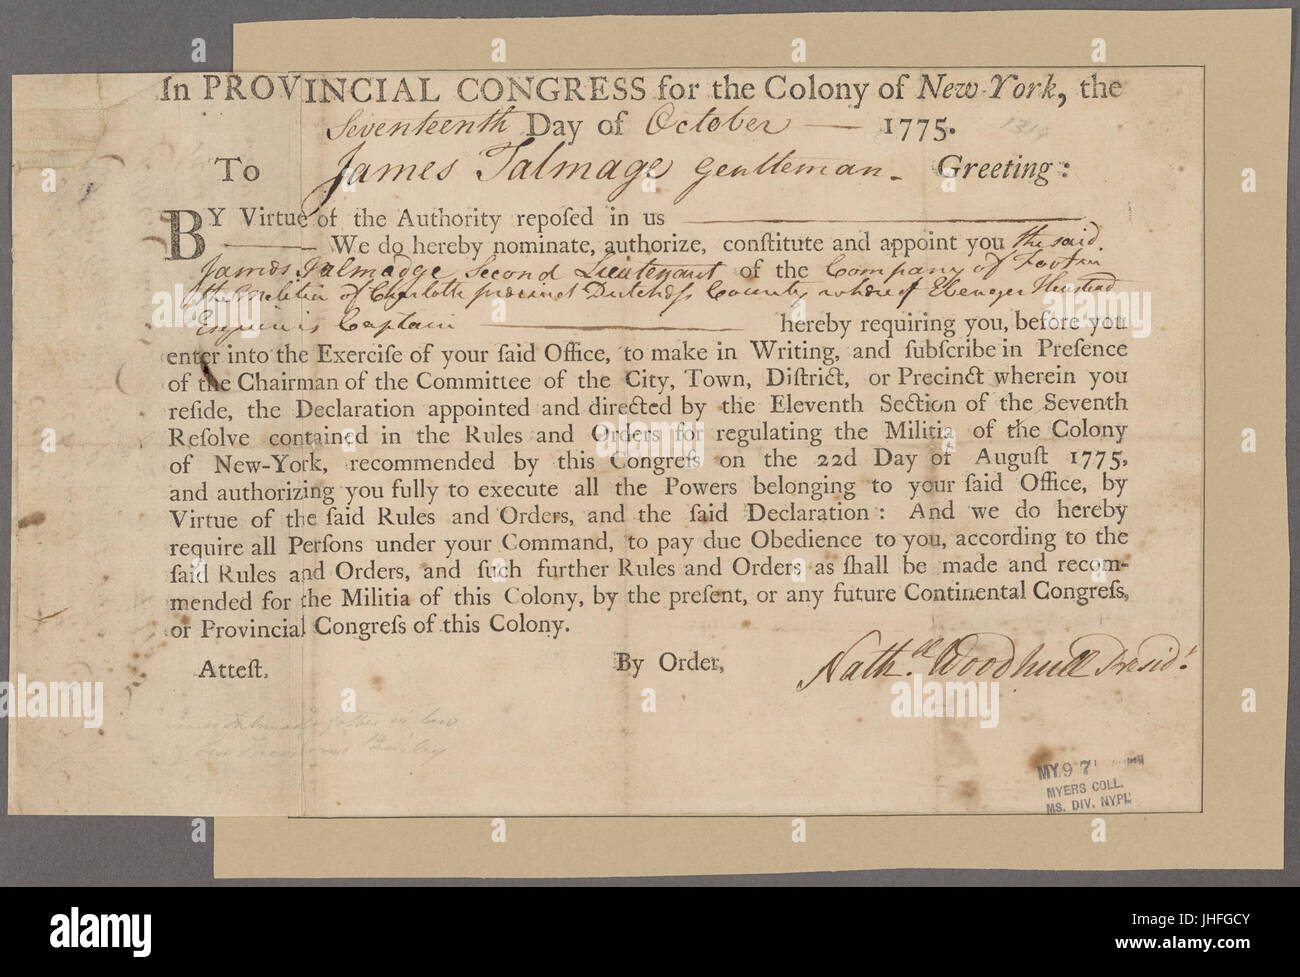 In PROVINCIAL CONGRESS for the Colony of New-York, the
Seventeenth Day of October — 1775.
1314
To James Talmage Gentleman. Greeting:
BY Virtue of the Authority reposed in us
We do hereby nominate, authorize, constitute and appoint you the said
James Talmadge Second Lieutenant of the Company of Foot in
the Militia of Charlotte precinct Dutchess County whereof Ebenezer
Esquire is Captain hereby requiring you, before you
enter into the Exercise of your said Office, to make in Writing, and subscribe in Presence
of the Chairman of the Committee of the City, Town, District, or Precinct wherein you
reside, the Declaration appointed and directed by the Eleventh Section of the Seventh
Resolve contained in the Rules and Orders for regulating the Militia of the Colony
of New-York, recommended by this Congress on the 22d Day of August 1775,
and authorizing you fully to execute all the Powers belonging to your said Office, by
Virtue of the said Rules and Orders, and the said Declaration: And we do hereby
require all Persons under your Command, to pay due Obedience to you, according to the
said Rules and Orders, and such further Rules and Orders as shall be made and recom-
mended for the Militia of this Colony, by the present, or any future Continental Congress,
or Provincial Congress of this Colony.
Attest. By Order, Nathel. Woodhull Presidt.
James Talmadge father in law
of
MY 97
MYERS COLL.
MS. DIV. NYPL
alamy
alamy stock photo
JHFGCY
www.alamy.com